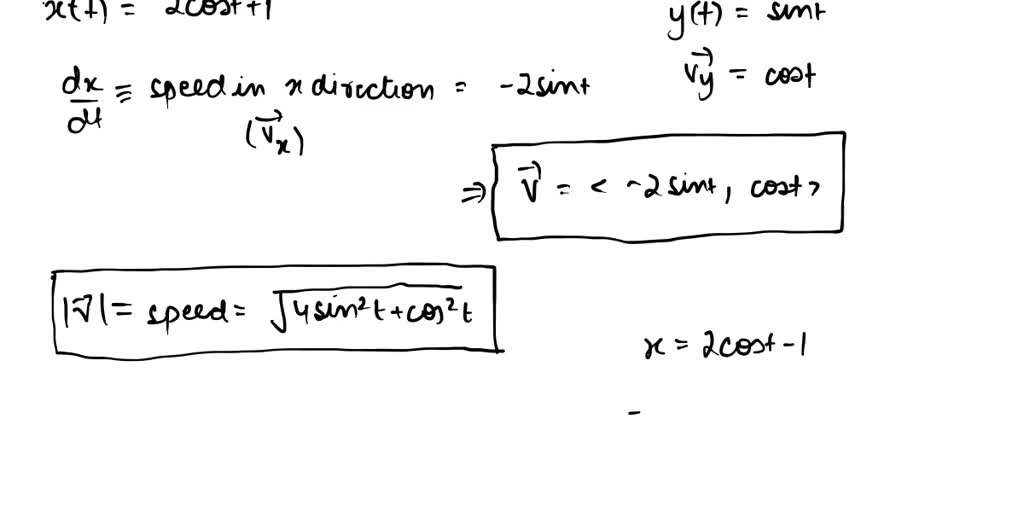 x(t) = 2cost+1
y(t) = sint
dx/dt ≡ speed in x direction = -2sint
(v⃗ₓ)
v⃗y = cost
⇒ v⃗ = < -2sint, cost>
|v⃗| = speed = √4sin²t+cos²t
x = 2cost-1
-